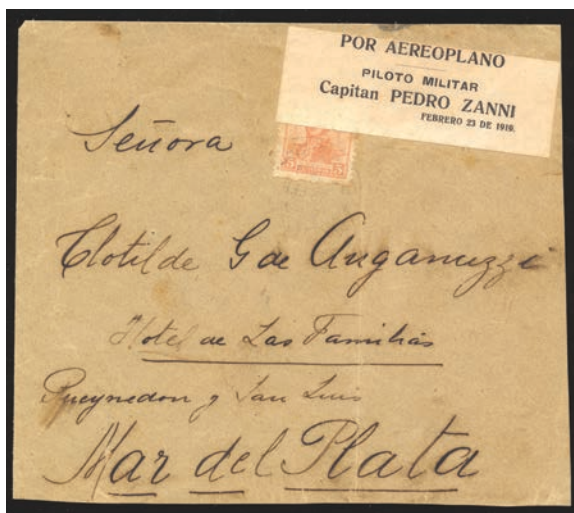 POR AEREOPLANO
PILOTO MILITAR
Capitan PEDRO ZANNI
FEBRERO 23 DE 1919.
5 5
Señora
Clotilde G de Anganuzzi
Hotel de Las Familias
Pueyrredon y San Luis
Mar del Plata